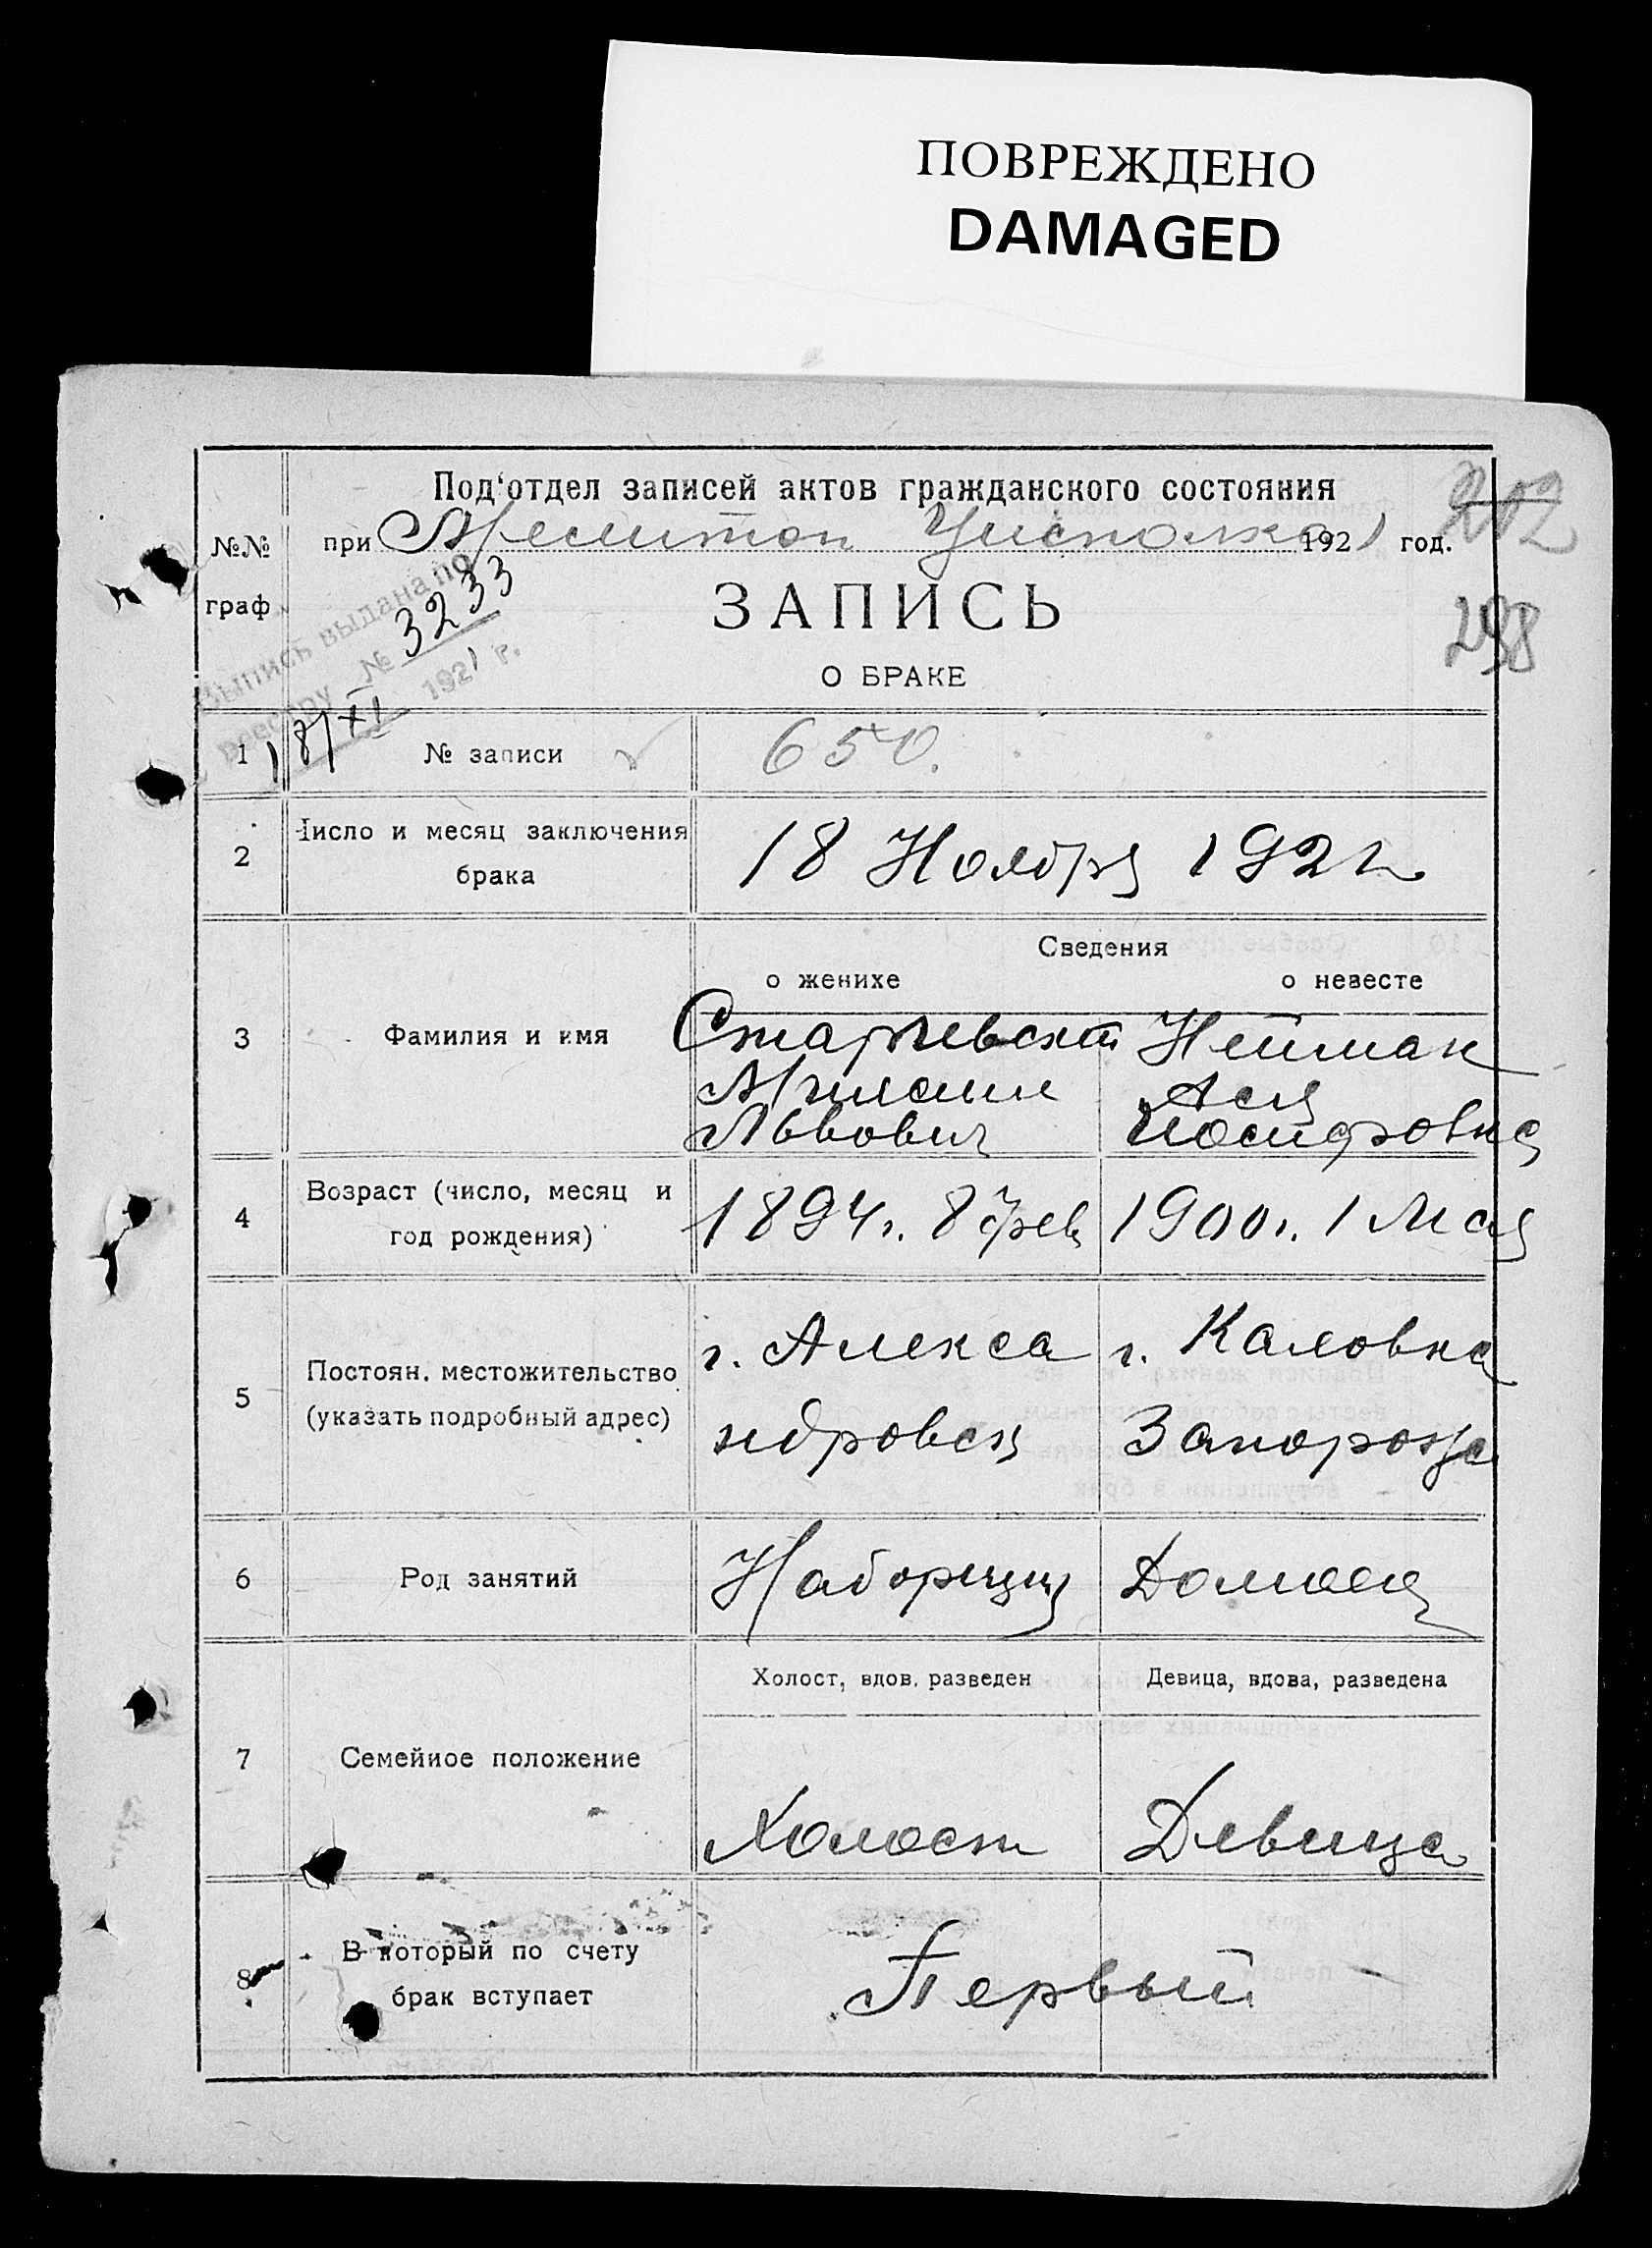 ПОВРЕЖДЕНО
DAMAGED
Под‘отдел записей актов гражданского состояния
202
№№ при Мелитоп Уисполка 1921 год.
граф
298
Выпись выдана по
реестру № 3233
18/XI 1921 г.
ЗАПИСЬ
О БРАКЕ
1 № записи 650.
2 Число и месяц заключения брака 18 Ноября 1921
Сведения
о женихе о невесте
3 Фамилия и имя
Нейман
Ася
Львович Иосифовна
4 Возраст (число, месяц и год рождения) 1894г. 8 фев 1900г. 1 Мая
5 Постоян. местожительство (указать подробный адрес)
г. Алекса г.
ндровск
6 Род занятий Наборщик
Холост, вдов, разведен Девица, вдова, разведена
7 Семейное положение
Холост Девица
8 В который по счету брак вступает Первый